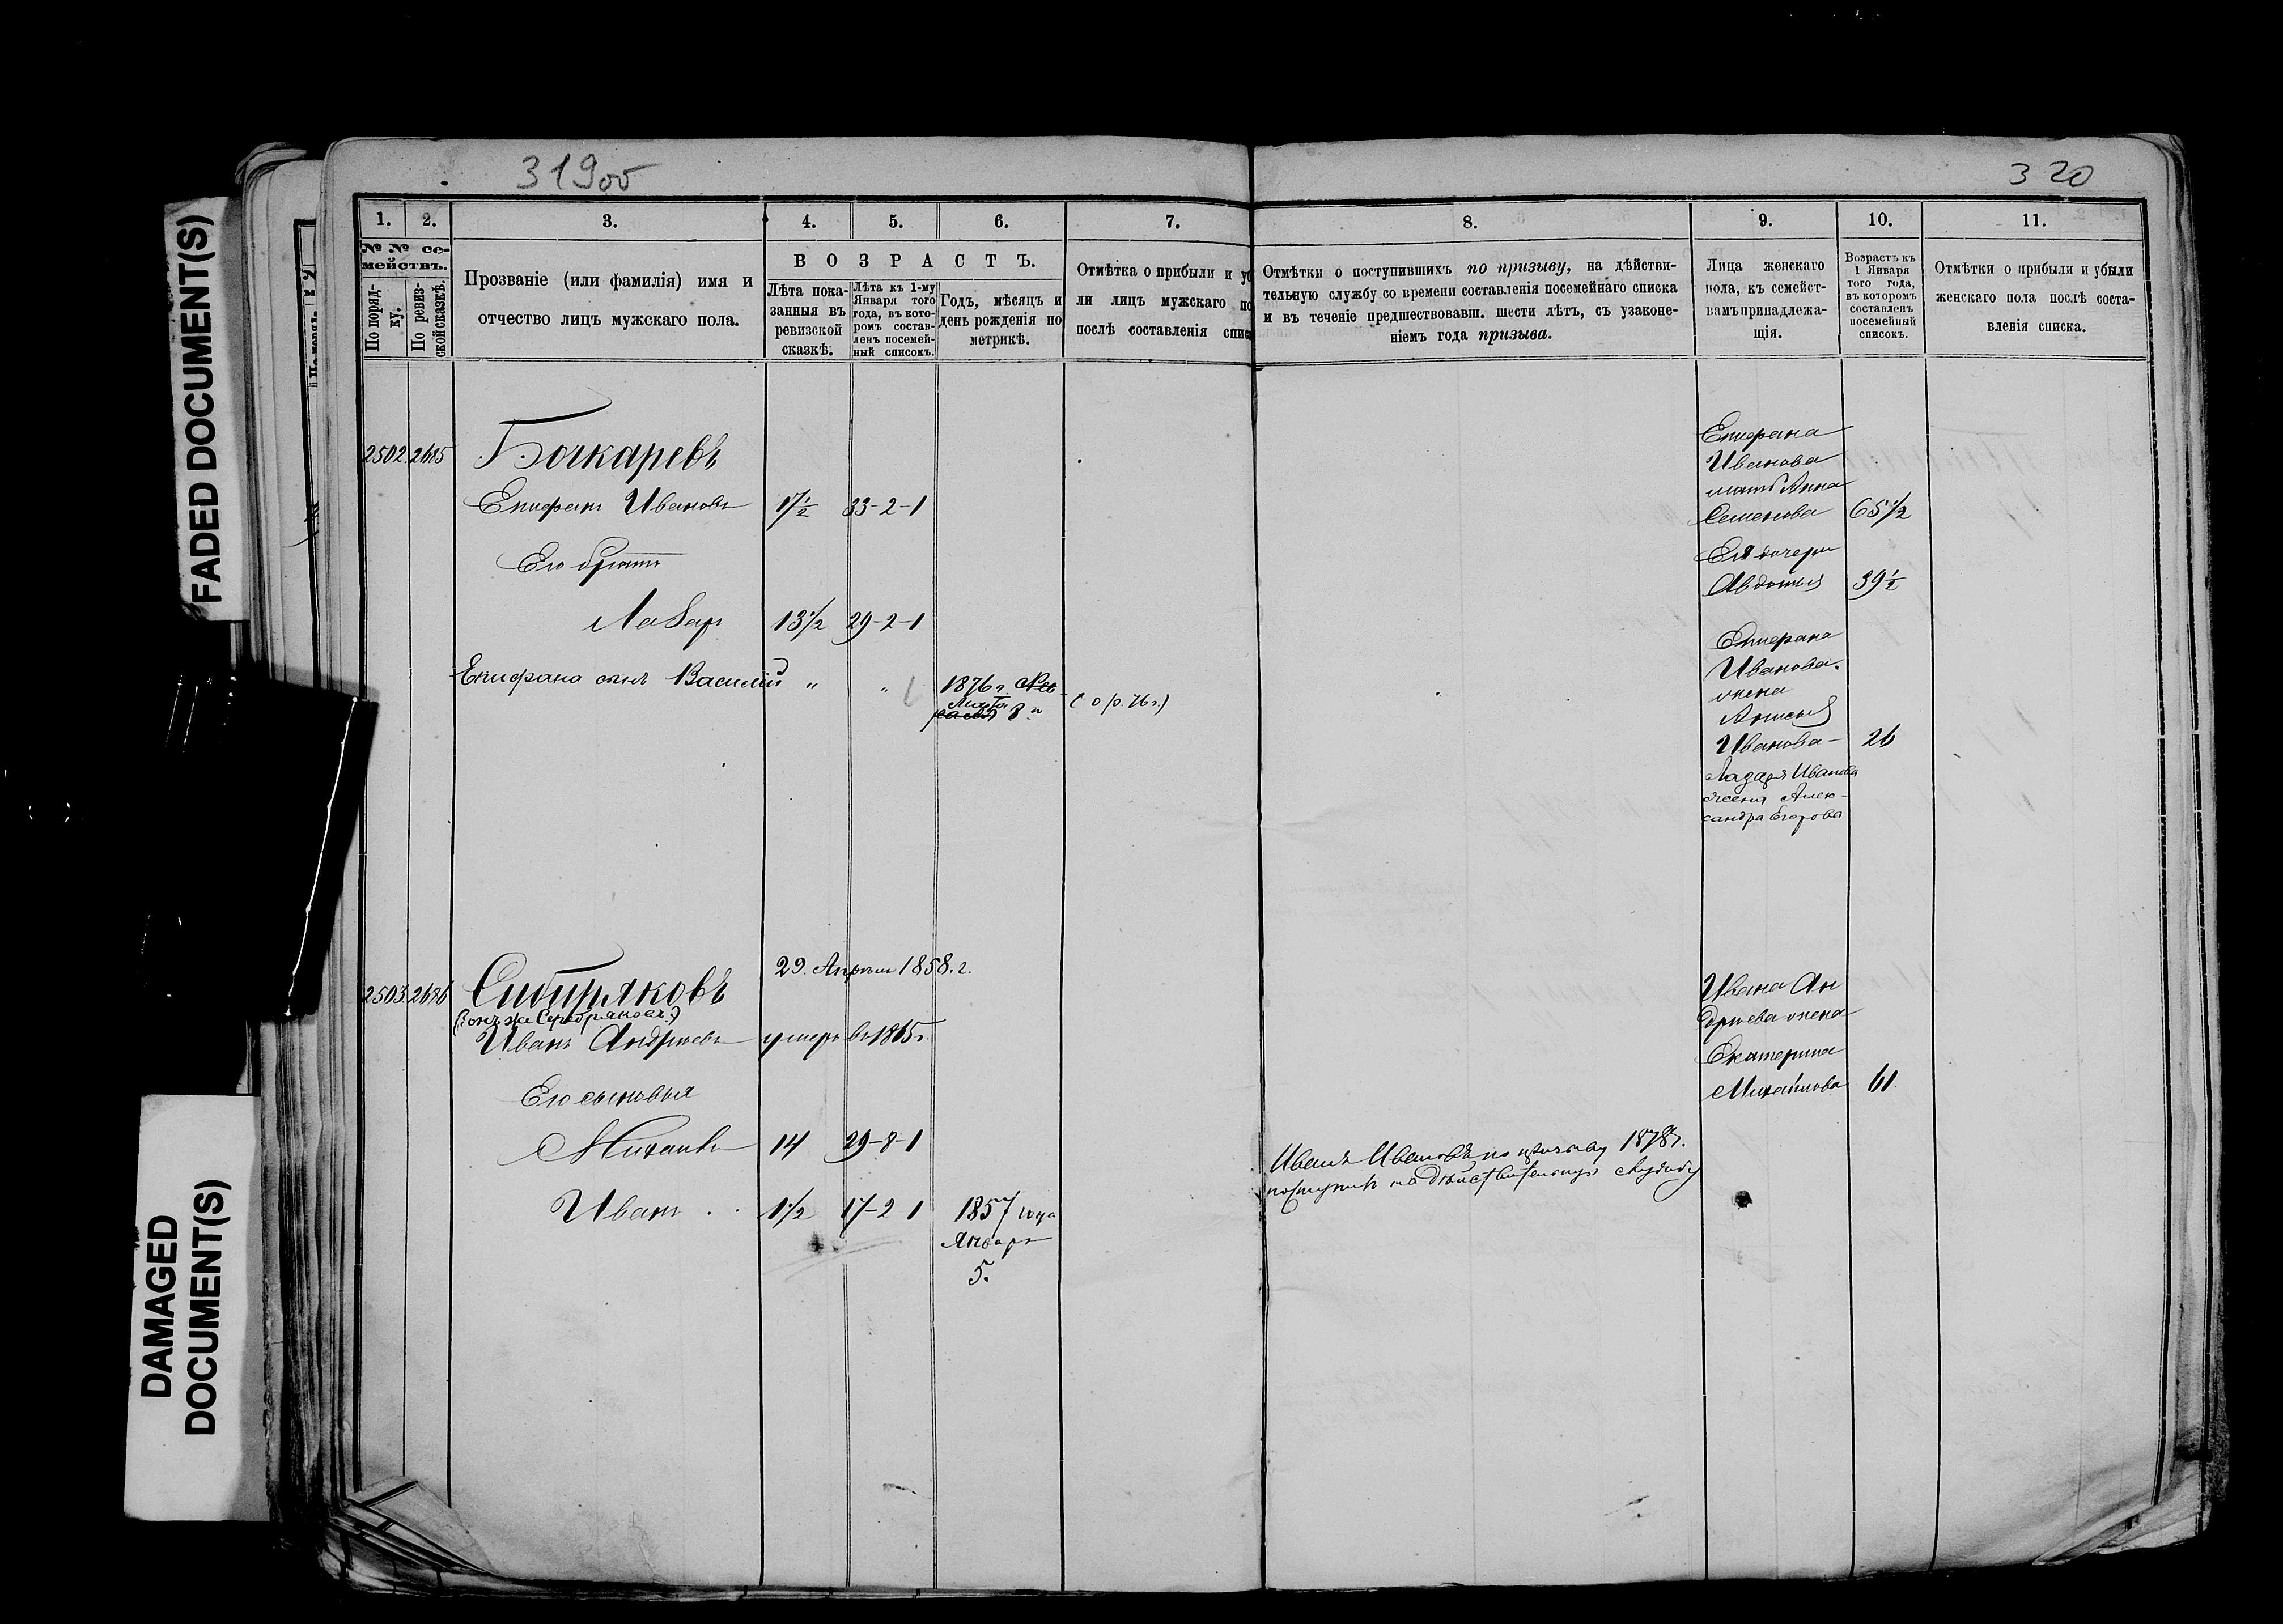 FADED DOCUMENT(S)
DAMAGED
DOCUMENT(S)
319об
320
1. 2. 3. 4. 5. 6. 7. 8. 9. 10. 11.
№ № се-
мействъ.
По поряд-
ку.
По ревиз-
ской сказкѣ.
Прозваніе (или фамилія) имя и
отчество лицъ мужскаго пола.
ВОЗРАСТЪ.
Лѣта пока-
занныя въ
ревизской
сказкѣ.
Лѣта къ 1-му
Января того
года, въ кото-
ромъ состав-
ленъ посемей-
ный списокъ.
Годъ, мѣсяцъ и
день рожденія по
метрикѣ.
Отмѣтка о прибыли и уб
ли лицъ мужскаго по
послѣ составленія спис
Отмѣтки о поступившихъ по призыву, на дѣйстви-
тельную службу со времени составленія посемейнаго списка
и въ теченіе предшествовавш. шести лѣтъ, съ узаконе-
ніемъ года призыва.
Лица женскаго
пола, къ семейст-
вамъ принадлежа-
щія.
Возрастъ къ
1 Января
того года,
въ которомъ
составленъ
посемейный
списокъ.
Отмѣтки о прибыли и убыли
женскаго пола послѣ соста-
вленія списка.
2502 2615 Бочкаревъ
Епифанъ Ивановъ 17½ 33-2-1
Его братъ
Лазарь 13½ 29-2-1
Епифана сынъ Василій " " 1876 г.
Марта 8 го
(о р. 76 г.)
Епифана
Иванова
мать Анна
Семенова 65½
Ея дочери
Авдотья 39½
Епифана
Иванова
жена
Анисья
Иванова 26
Лазаря Иванова
жена Алек-
сандра Егорова
29. Апрѣля 1858. г.
2503 2616 Сибиряковъ
(онъ же Серебряковъ)
Иванъ Андреевъ умеръ въ 1865 г.
Его сыновья
Михаилъ 14 29-8-1
Иванъ 1½ 17-2 1 1857 года
Январь
5.
Иванъ Ивановъ по призыву 1878 г.
поступилъ на дѣйствительную службу
Ивана Ан
дреева жена
Екатерина
Михайлова 61